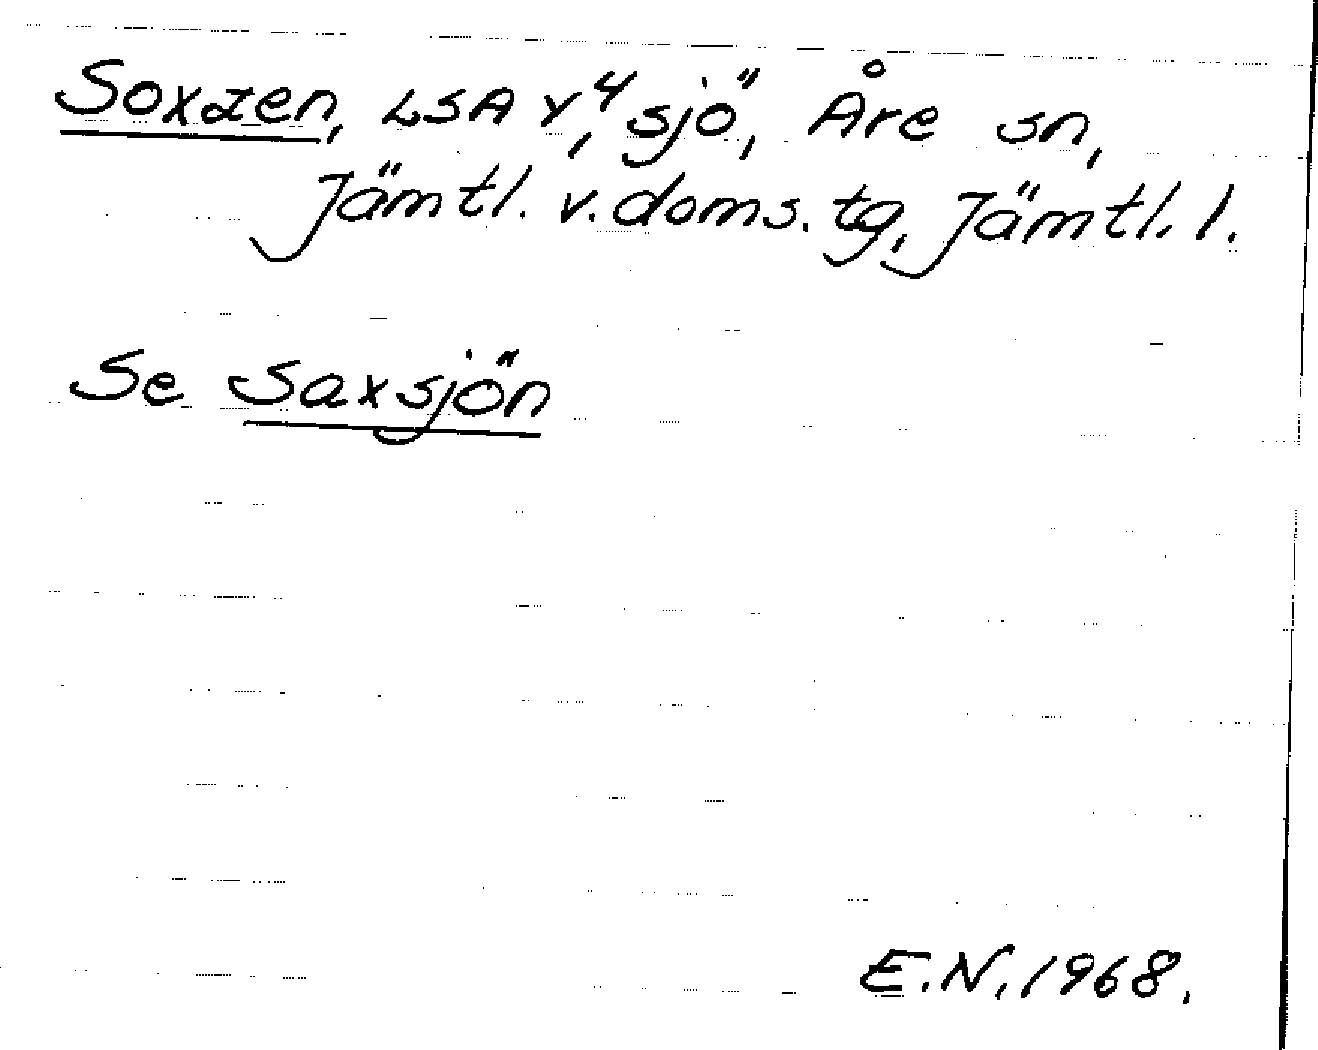 Soxzen, LSA Y,⁴ sjö, Åre sn,
Jämtl. v. doms. tg, Jämtl. l.
Se Saxsjön
E.N, 1968.